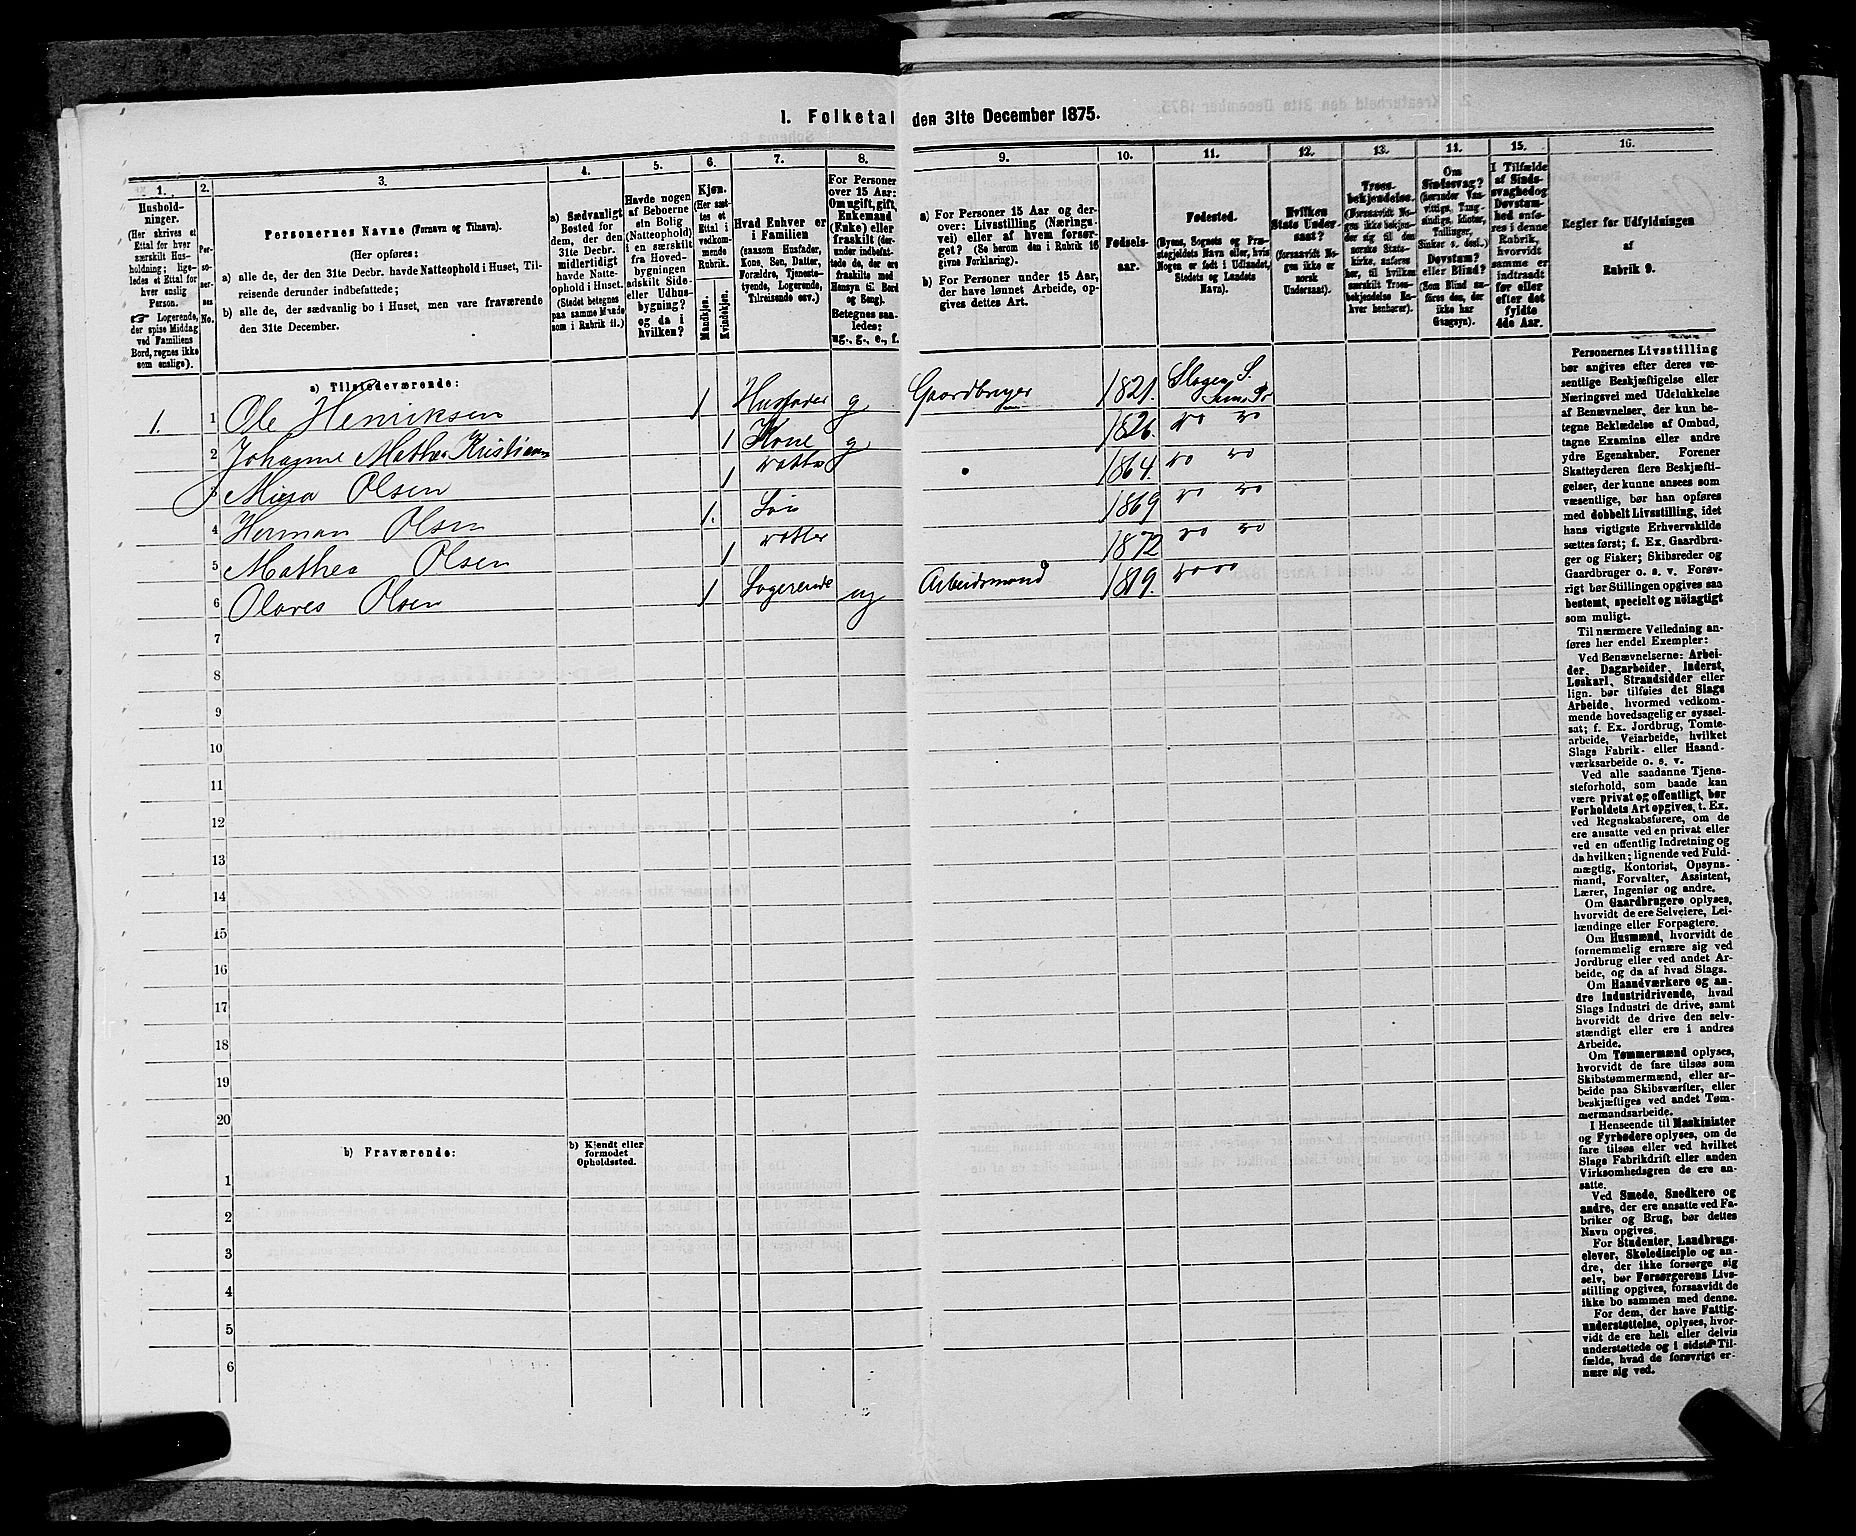 1. Folketal den 31te December 1875.
1.
Hushold-
ninger.
(Her skrives et
Ettal for hver
særskilt Hus-
holdning; lige-
ledes et Ettal for
hver enslig
Person.
Logerende,
der spise Middag
ved Familiens
Bord, regnes ikke
som enslige).
2.
Per-
so-
ner-
nes
No.
3.
Personernes Navne (Fornavn og Tilnavn).
(Her opføres:
a) alle de, der den 31te Decbr. havde Natteophold i Huset, Til-
reisende derunder indbefattede;
b) alle de, der sædvanlig bo i Huset, men vare fraværende
den 31te December.
4.
a) Sædvanligt
Bosted for
dem, der den
31te Decbr.
midlertidigt
havde Natte-
ophold i Huset.
(Stedet betegnes
paa samme Maade
som i Rubrik 11.)
5.
Havde nogen
af Beboerne
sin Bolig
(Natteophold)
i en særskilt
fra Hoved-
bygningen
adskilt Side-
eller Udhus-
bygning?
og da i
hvilken?
6.
Kjøn.
(Her sæt-
tes et
Ettal i
vedkom-
mende
Rubrik.
Mandkjøn.
Kvindekjøn.
7.
Hvad Enhver er
i Familien
(saasom Husfader,
Kone, Søn, Datter,
Forældre, Tjeneste-
tyende, Logerende,
Tilreisende osv.)
8.
For Personer
over 15 Aar:
Om ugift, gift,
Enkemand
(Enke) eller
fraskilt (der-
under indbefat-
tede de, der ere
fraskilte med
Hensyn til Bord
og Seng).
Betegnes saa-
ledes:
ug., g., e., f.
9.
a) For Personer 15 Aar og der-
over: Livsstilling (Nærings-
vei) eller af hvem forsør-
get? (Se herom den i Rubrik 16
givne Forklaring).
b) For Personer under 15 Aar,
der have lønnet Arbeide, op-
gives dettes Art.
10.
Fødsels-
aar.
11.
Fødested.
(Byens, Sognets og Præ-
stegjeldets Navn eller, hvis
Nogen er født i Udlandet,
Stedets og Landets
Navn).
12.
Hvilken
Stats Under-
saat?
(forsaavidt No-
gen ikke er
norsk
Undersaat).
13.
Troes-
bekjendelse.
(Forsaavidt No-
gen ikke beken-
der sig til den
norske Stats-
kirke, anføres
her, til hvilken
særskilt Troes-
bekjendelse En-
hver henhører).
14.
Om
Sindssvag?
(herunder Van-
vittige, Tung-
sindige, Idioter,
Tullinger,
Sinker o. desl.)
Døvstum?
eller Blind?
(Som Blind an-
føres den, der
ikke har
Gangsyn).
15.
I Tilfælde
af Sinds-
svaghed og
Døvstum-
hed anfø-
res i denne
Rubrik,
hvorvidt
samme er
indtraadt
før eller
efter det
fyldte
4de Aar.
16.
Regler for Udfyldningen
af
Rubrik 9.
a) Tilstedeværende:
1. 1 Ole Henriksen 1 Husfader g Gaardbruger 1821. Slagen S.
2 Johanne Mathea 1 Kone g 1826. do do
3 Olsen 1 datter 1864. do do
4 Herman Olsen 1. Søn 1869 do do
5 Mathea Olsen 1 datter 1872 do do
6 Olaves Olsen 1 Logerende ug Arbeidsmand 1819. do do
7
8
9
10
11
12
13
14
15
16
17
18
19
20
b) Fraværende:
b) Kjendt eller
formodet
Opholdssted.
1
2
3
4
5
6
Personernes Livsstilling
bør angives efter deres væ-
sentlige Beskjæftigelse eller
Næringsvei med Udelukkelse
af Benævnelser, der kun be-
tegne Beklædelse af Ombud,
tagne Examina eller andre
ydre Egenskaber. Forener
Skatteyderen flere Beskjæfti-
gelser, der kunne ansees som
væsentlige, bør han opføres
med dobbelt Livsstilling, idet
hans vigtigste Erhvervskilde
sættes først; f. Ex. Gaardbru-
ger og Fisker; Skibsreder og
Gaardbruger o. s. v. Forøv-
rigt bør Stillingen opgives saa
bestemt, specielt og nøiagtigt
som muligt.
Til nærmere Veiledning an-
føres her endel Exempler:
Ved Benævnelserne: Arbei-
der, Dagarbeider, Inderst,
Løskarl, Strandsidder eller
lign. bør tilføies det Slags
Arbeide, hvormed vedkom-
mende hovedsagelig er syssel-
sat; f. Ex. Jordbrug, Tomte-
arbeide, Veiarbeide, hvilket
Slags Fabrik- eller Haand-
værksarbeide o. s. v.
Ved alle saadanne Tjene-
steforhold, som baade kan
være privat og offentligt, bør
Forholdets Art opgives, t. Ex.
ved Regnskabsførere, om de
ere ansatte ved en privat eller
ved en offentlig Indretning og
da hvilken; lignende ved Fuld-
mægtig, Kontorist, Opsyns-
mand, Forvalter, Assistent,
Lærer, Ingeniør og andre.
Om Gaardbrugere oplyses,
hvorvidt de ere Selveiere, Lei-
lændinge eller Forpagtere.
Om Husmænd, hvorvidt de
fornemmelig ernære sig ved
Jordbrug eller ved andet Ar-
beide, og da af hvad Slags.
Om Haandværkere og an-
dre industridrivende, hvad
Slags Industri de drive, samt
hvorvidt de drive den selv-
stændigt eller ere i andres
Arbeide.
Om Tømmermænd oplyses,
hvorvidt de fare tilsøs som
Skibstømmermænd, eller ar-
beide paa Skibsværfter, eller
beskjæftiges ved andet Tøm-
mermandsarbeide.
I Henseende til Maskinister
og Fyrbødere oplyses, om de
fare tilsøs eller ved hvilket
Slags Fabrikdrift eller anden
Virksomhedsgren de ere an-
satte.
Ved Smede, Snedkere og
andre, der ere ansatte ved Fa-
briker og Brug, bør dettes
Navn opgives.
For Studenter, Landbrugs-
elever, Skoledisciple og an-
dre, der ikke forsørge sig
selv, bør Forsørgerens Livs-
stilling opgives, forsaavidt de
ikke bo sammen med denne.
For dem, der have Fattig-
understøttelse, oplyses, hvor-
vidt de ere helt eller delvis
understøttede og i sidste Til-
fælde, hvad de forøvrigt er-
nære sig ved.